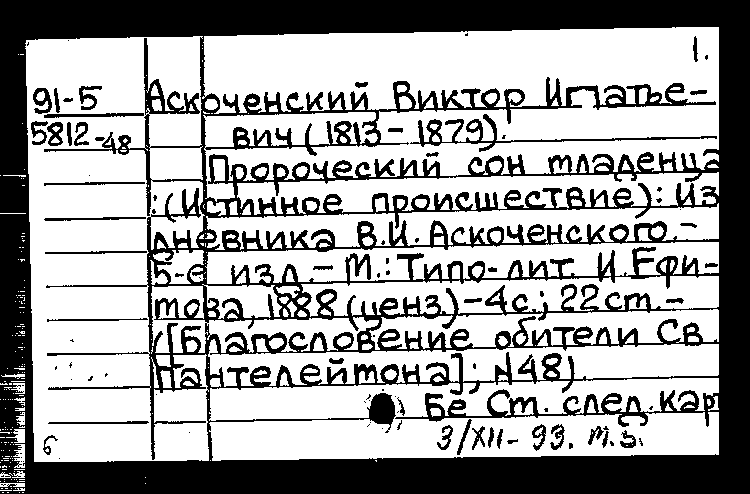 1.
91-5 Аскоченский, Виктор Игнатье-
5812-48 вич (1813-1879).
Пророческий сон младенца
:(Истинное происшествие): Из
дневника В.И. Аскоченского.-
5-е изд.- М.: Типо-лит. И. Ефи-
мова, 1888 (ценз.)-4с.; 22см.-
([Благословение обители Св.
Пантелеймона]; №48).
Бе См. след. карт
б 3/XII-93. м.Б.